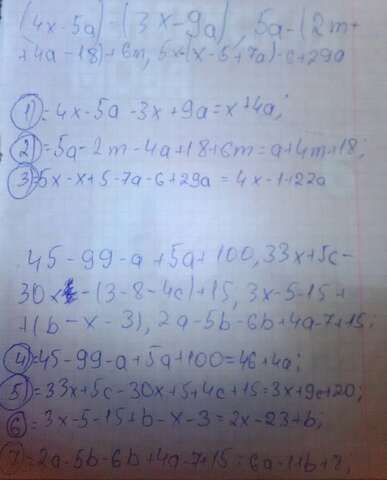 (4x-5a)-(3x-9a), 5a-(2m+
+4a-18)+6m, 5x-(x-5+7a)-6+29a
1)=4x-5a-3x+9a=x+4a;
2)=5a-2m-4a+18+6m=a+4m+18;
3)=5x-x+5-7a-6+29a=4x-1+22a
45-99-a+5a+100, 33x+5c-
30x-(3-8-4c)+15, 3x-5-15+
+(b-x-3), 2a-5b-6b+4a-7+15;
4)=45-99-a+5a+100=46+4a;
5)=33x+5c-30x+5+4c+15=3x+9c+20;
6)=3x-5-15+b-x-3=2x-23+b;
7)=2a-5b-6b+4a-7+15=6a-11b+8;